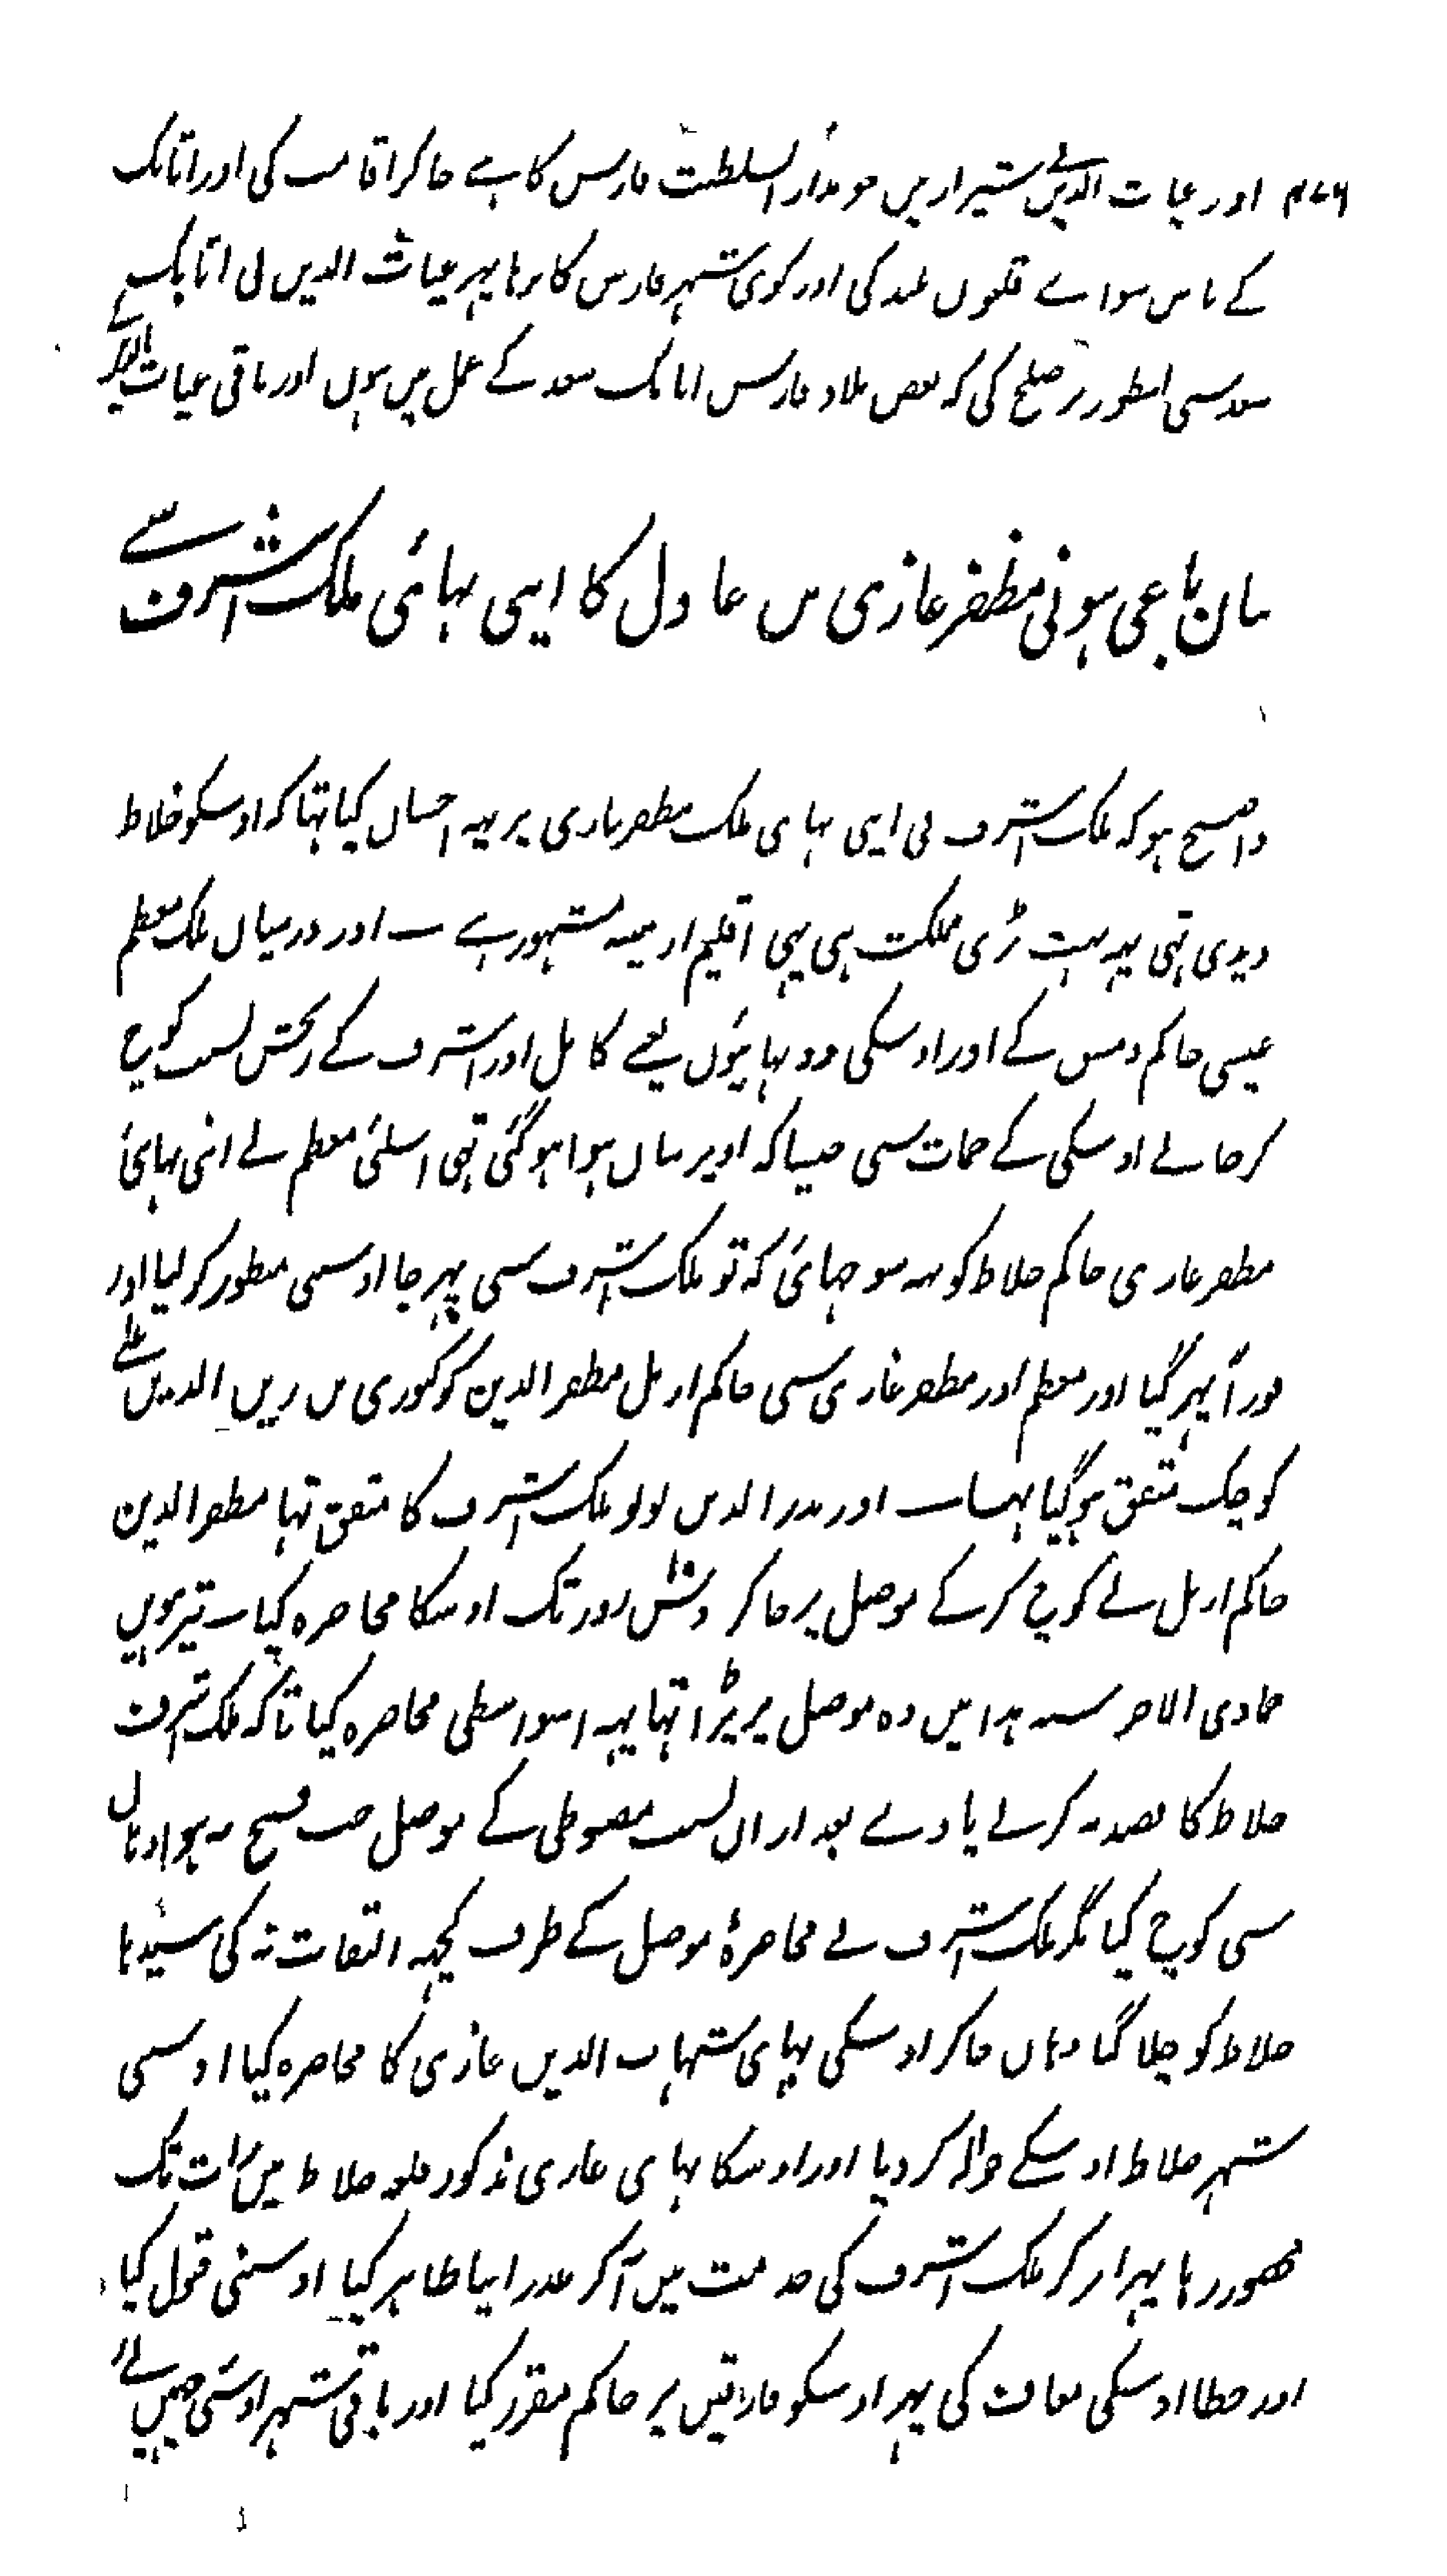 ۴۷۶ اور غیاث الدین نے شیراز میں جو مدار السلطنت فارس کا ہے جا کر اقامت کی اور اتابک
کے پاس سواے قلعوں بلند کی اور کوی شہر فارس کا نرہا پہر غیاث الدین نی اتابک
سعد سی اسطور پر صلح کی کہ بعض بلاد فارس اتابک سعد کے عمل میں ہوں اور باقی غیاث الدین کے
بیان باغی ہونی مظفر غازی بن عادل کا اپنی بہائی ملک اشرف سے
واضح ہو کہ ملک اشرف نی اپنی بہای ملک مظفر غازی پر یہہ احسان کیا تہا کہ اوسکو خلاط
دیدی تہی یہہ بہت بڑی مملکت ہی یہی اقلیم ارمینیہ مشہور ہے ۔ اور درمیان ملک معظم
عیسی حاکم دمشق کے اور اوسکی دو بہائیوں یعنے کامل اور اشرف کے رنجش بسبب کوچ
کرجانے اوسکی کے حمات سی جیسا کہ اوپر بیان ہوا ہو گئی تہی اسلئی معظم نے اپنی بہائی
مظفر غازی حاکم خلاط کو یہہ سوجہائی کہ تو ملک اشرف سی پہر جا اوسنی منظور کر لیا اور
فوراً پہر گیا اور معظم اور مظفر غازی سی حاکم اربل مظفر الدین کوکبوری بن زین الدین علے
کوچک متفق ہو گیا تہا ۔ اور بدر الدین لولو ملک اشرف کا متفق تہا مظفر الدین
حاکم اربل نے کوچ کر کے موصل پر جا کر دش روز تک اوسکا محاصرہ کیا ۔ تیرہویں
جمادی الاخر سنہ ہذا میں وہ موصل پر پڑا تہا یہہ اسواسطی محاصرہ کیا تا کہ ملک اشرف
خلاط کا قصد نہ کرنے پاوے بعد ازاں بسبب مضبوطی کے موصل جب فتح نہ ہوا وہاں
سی کوچ کیا مگر ملک اشرف نے محاصرۂ موصل کے طرف کچہہ التفات نہ کی سیدہا
خلاط کو چلا گیا وہاں جا کر اوسکی بہای شہاب الدین غازی کا محاصرہ کیا اوسنی
شہر خلاط اوسکے حوالہ کر دیا اور اوسکا بہای غازی مذکور قلعہ خلاط میں رات تک
محصور رہا پہر اتر کر ملک اشرف کی خدمت میں آکر عذر اپنا ظاہر کیا اوسنی قبول کیا
اور خطا اوسکی معاف کی پہر اوسکو میافارقین پر حاکم مقرر کیا اور باقی شہر اوسنی چہین لئے